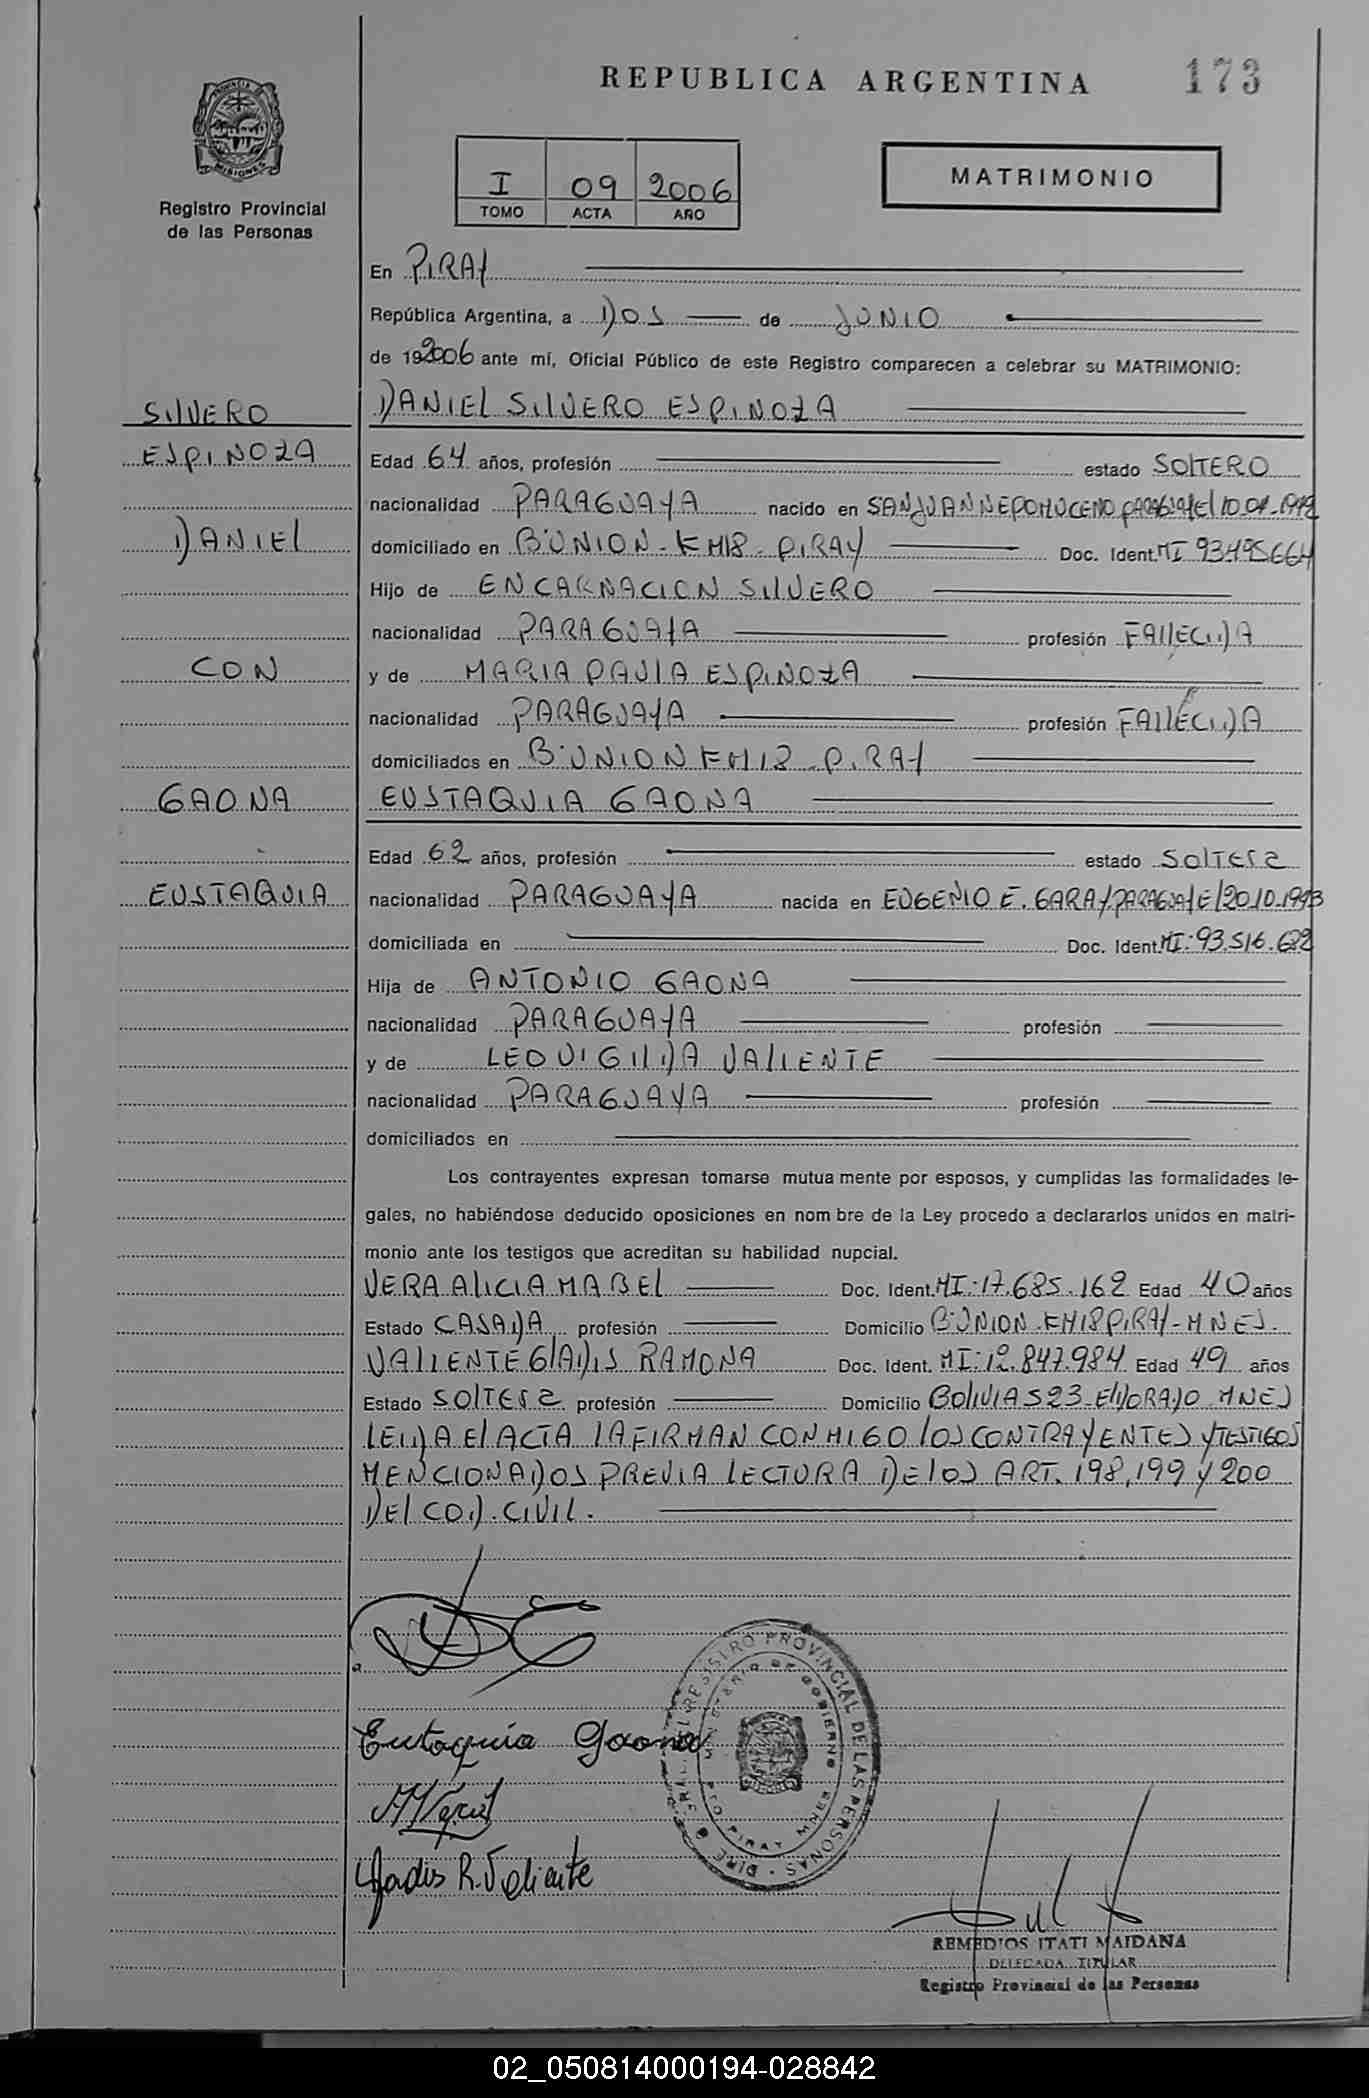 REPUBLICA ARGENTINA 173
PROVINCIA DE MISIONES
Registro Provincial
de las Personas
I 09 2006
TOMO ACTA AÑO
MATRIMONIO
En PIRAY
República Argentina, a DOS de JUNIO
de 192006 ante mí, Oficial Público de este Registro comparecen a celebrar su MATRIMONIO:
SILVERO DANIEL SILVERO ESPINOZA
ESPINOZA Edad 64 años, profesión estado SOLTERO
nacionalidad PARAGUAYA nacido en SAN JUAN NEPOMUCENO PARAGUAY El 10.01.1942
DANIEL domiciliado en Bº UNION - KM18 - PIRAY Doc. Ident. MI 93495664
Hijo de ENCARNACION SILVERO
nacionalidad PARAGUAYA profesión FALLECIDA
CON y de MARIA PAULA ESPINOZA
nacionalidad PARAGUAYA profesión FALLECIDA
domiciliados en Bº UNION KM18 - PIRAY
GAONA EUSTAQUIA GAONA
Edad 62 años, profesión estado SOLTERA
EUSTAQUIA nacionalidad PARAGUAYA nacida en EUGENIO E. GARAY PARAGUAY El 20.10.1943
domiciliada en Doc. Ident. MI: 93.516.622
Hija de ANTONIO GAONA
nacionalidad PARAGUAYA profesión
y de LEOVIGILDA VALIENTE
nacionalidad PARAGUAYA profesión
domiciliados en
Los contrayentes expresan tomarse mutua mente por esposos, y cumplidas las formalidades le-
gales, no habiéndose deducido oposiciones en nom bre de la Ley procedo a declararlos unidos en matri-
monio ante los testigos que acreditan su habilidad nupcial.
VERA ALICIA MABEL Doc. Ident. MI: 17.685.162 Edad 40 años
Estado CASADA profesión Domicilio Bº UNION - KM18 PIRAY - MNES.
VALIENTE GLADIS RAMONA Doc. Ident. MI: 12.847.984 Edad 49 años
Estado SOLTERA profesión Domicilio BOLIVIA 523 - ELDORADO - MNES
LEIDA EL ACTA LA FIRMAN CONMIGO LOS CONTRAYENTES Y TESTIGOS
MENCIONADOS PREVIA LECTURA DE LOS ART. 198, 199 Y 200
DEL COD. CIVIL.
Eutaquia Gaona
Gladis R. Valiente
REGISTRO PROVINCIAL DE LAS PERSONAS
MINISTERIO DE GOBIERNO
PTO PIRAY MNES
REMEDIOS ITATI MAIDANA
DELEGADA TITULAR
Registro Provincial de las Personas
02_050814000194-028842